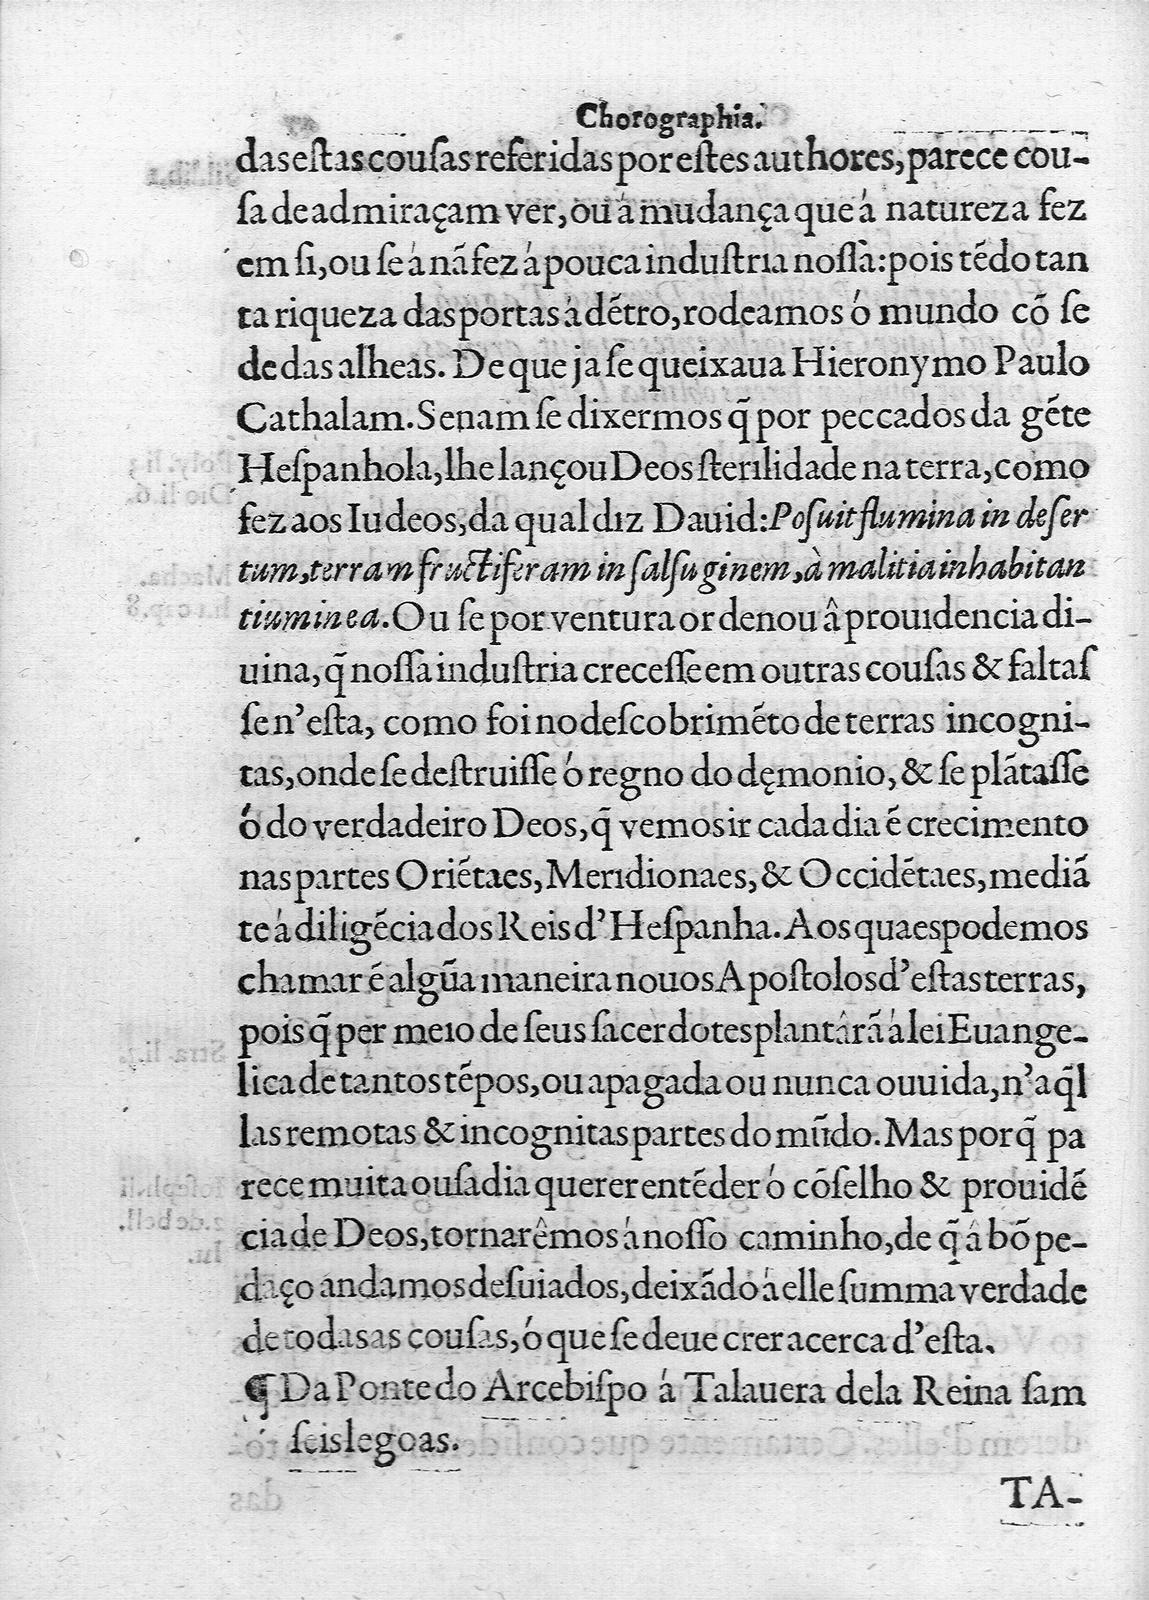 Chorographia.
das eſtas couſas referidas por eſtes authores, parece cou-
ſa de admiraçam ver, ou á mudança que á natureza fez
em ſi, ou ſe á nã fez á pouca induſtria noſſa: pois tẽdo tan
ta riqueza das portas á dẽtro, rodeamos ó mundo cõ ſe
de das alheas. De que ja ſe queixaua Hieronymo Paulo
Cathalam. Se nam ſe dixermos q̃ por peccados da gẽte
Heſpanhola, lhe lançou Deos ſterilidade na terra, como
fez aos Iudeos, da qual diz Dauid: Poſuit flumina in deſer
tum, terram fructiferam in ſalſuginem, à malitia inhabitan
tium in ea. Ou ſe por ventura ordenou â prouidencia di-
uina, q̃ noſſa induſtria creceſſe em outras couſas & faltaſ
ſe n'eſta, como foi no deſcobrimẽto de terras incogni-
tas, onde ſe deſtruiſſe ó regno do dęmonio, & ſe plãtaſſe
ó do verdadeiro Deos, q̃ vemos ir cada dia ẽ crecimento
nas partes Oriẽtaes, Meridionaes, & Occidẽtaes, mediã
te á diligẽcia dos Reis d'Heſpanha. Aos quaes podemos
chamar ẽ algũa maneira nouos Apoſtolos d'eſtas terras,
pois q̃ per meio de ſeus ſacerdotes plantârã á lei Euange-
lica de tantos tẽpos, ou apagada ou nunca ouuida, n'aq̃l
las remotas & incognitas partes do mũdo. Mas porq̃ pa
rece muita ouſadia querer entẽder ó cõſelho & prouidẽ
cia de Deos, tornarêmos á noſſo caminho, de q̃ â bõ pe-
daço andamos deſuiados, deixãdo á elle ſumma verdade
de todas as couſas, ó que ſe deue crer acerca d'eſta.
¶ Da Ponte do Arcebiſpo á Talauera dela Reina ſam
ſeis legoas.
TA-